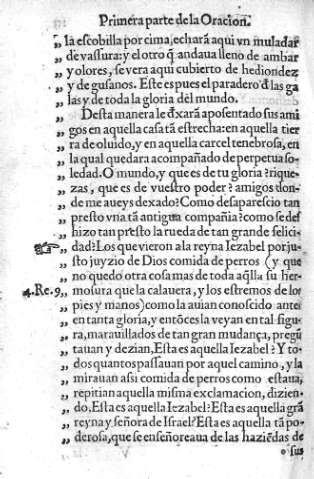 Primera parte de la Oracion.
„ la escobilla por cima, echará aqui vn muladar
„ de vassura: y el otro q̃ andaua lleno de ambar
„ y olores, se vera aqui cubierto de hediondez
„ y de gusanos. Este es pues el paradero d̃ las ga
„ las y de toda la gloria del mundo.
„ Desta manera le dexará aposentado sus ami
„ gos en aquella casa tã estrecha: en aquella tier
„ ra de oluido, y en aquella carcel tenebrosa, en
„ la qual quedara acompañado de perpetua so-
„ ledad. O mundo, y que es de tu gloria? rique-
„ zas, que es de vuestro poder? amigos don-
„ de me aueys dexado? Como desaparescio tan
„ presto vna tã antigua compañia? como se des
„ hizo tan presto la rueda de tan grande felici-
☞ „ dad? Los que vieron a la reyna Iezabel por ju-
„ sto juyzio de Dios comida de perros (y que
„ no quedo otra cosa mas de toda aq̃lla su her-
4.Re.9. „ mosura que la calauera, y los estremos de los
„ pies y manos) como la auian conoscido antes
„ en tanta gloria, y entõces la veyan en tal figu-
„ ra, marauillados de tan gran mudança, pregũ
„ tauan y dezian, Esta es aquella Iezabel? Y to-
„ dos quantos passauan por aquel camino, y la
„ mirauan assi comida de perros como estaua,
„ repitian aquella misma exclamacion, dizien-
„ do, Esta es aquella Iezabel? Esta es aquella grã
„ reyna y señora de Israel? Esta es aquella tã po-
„ derosa, que se enseñoreaua de las haziẽdas de
sus